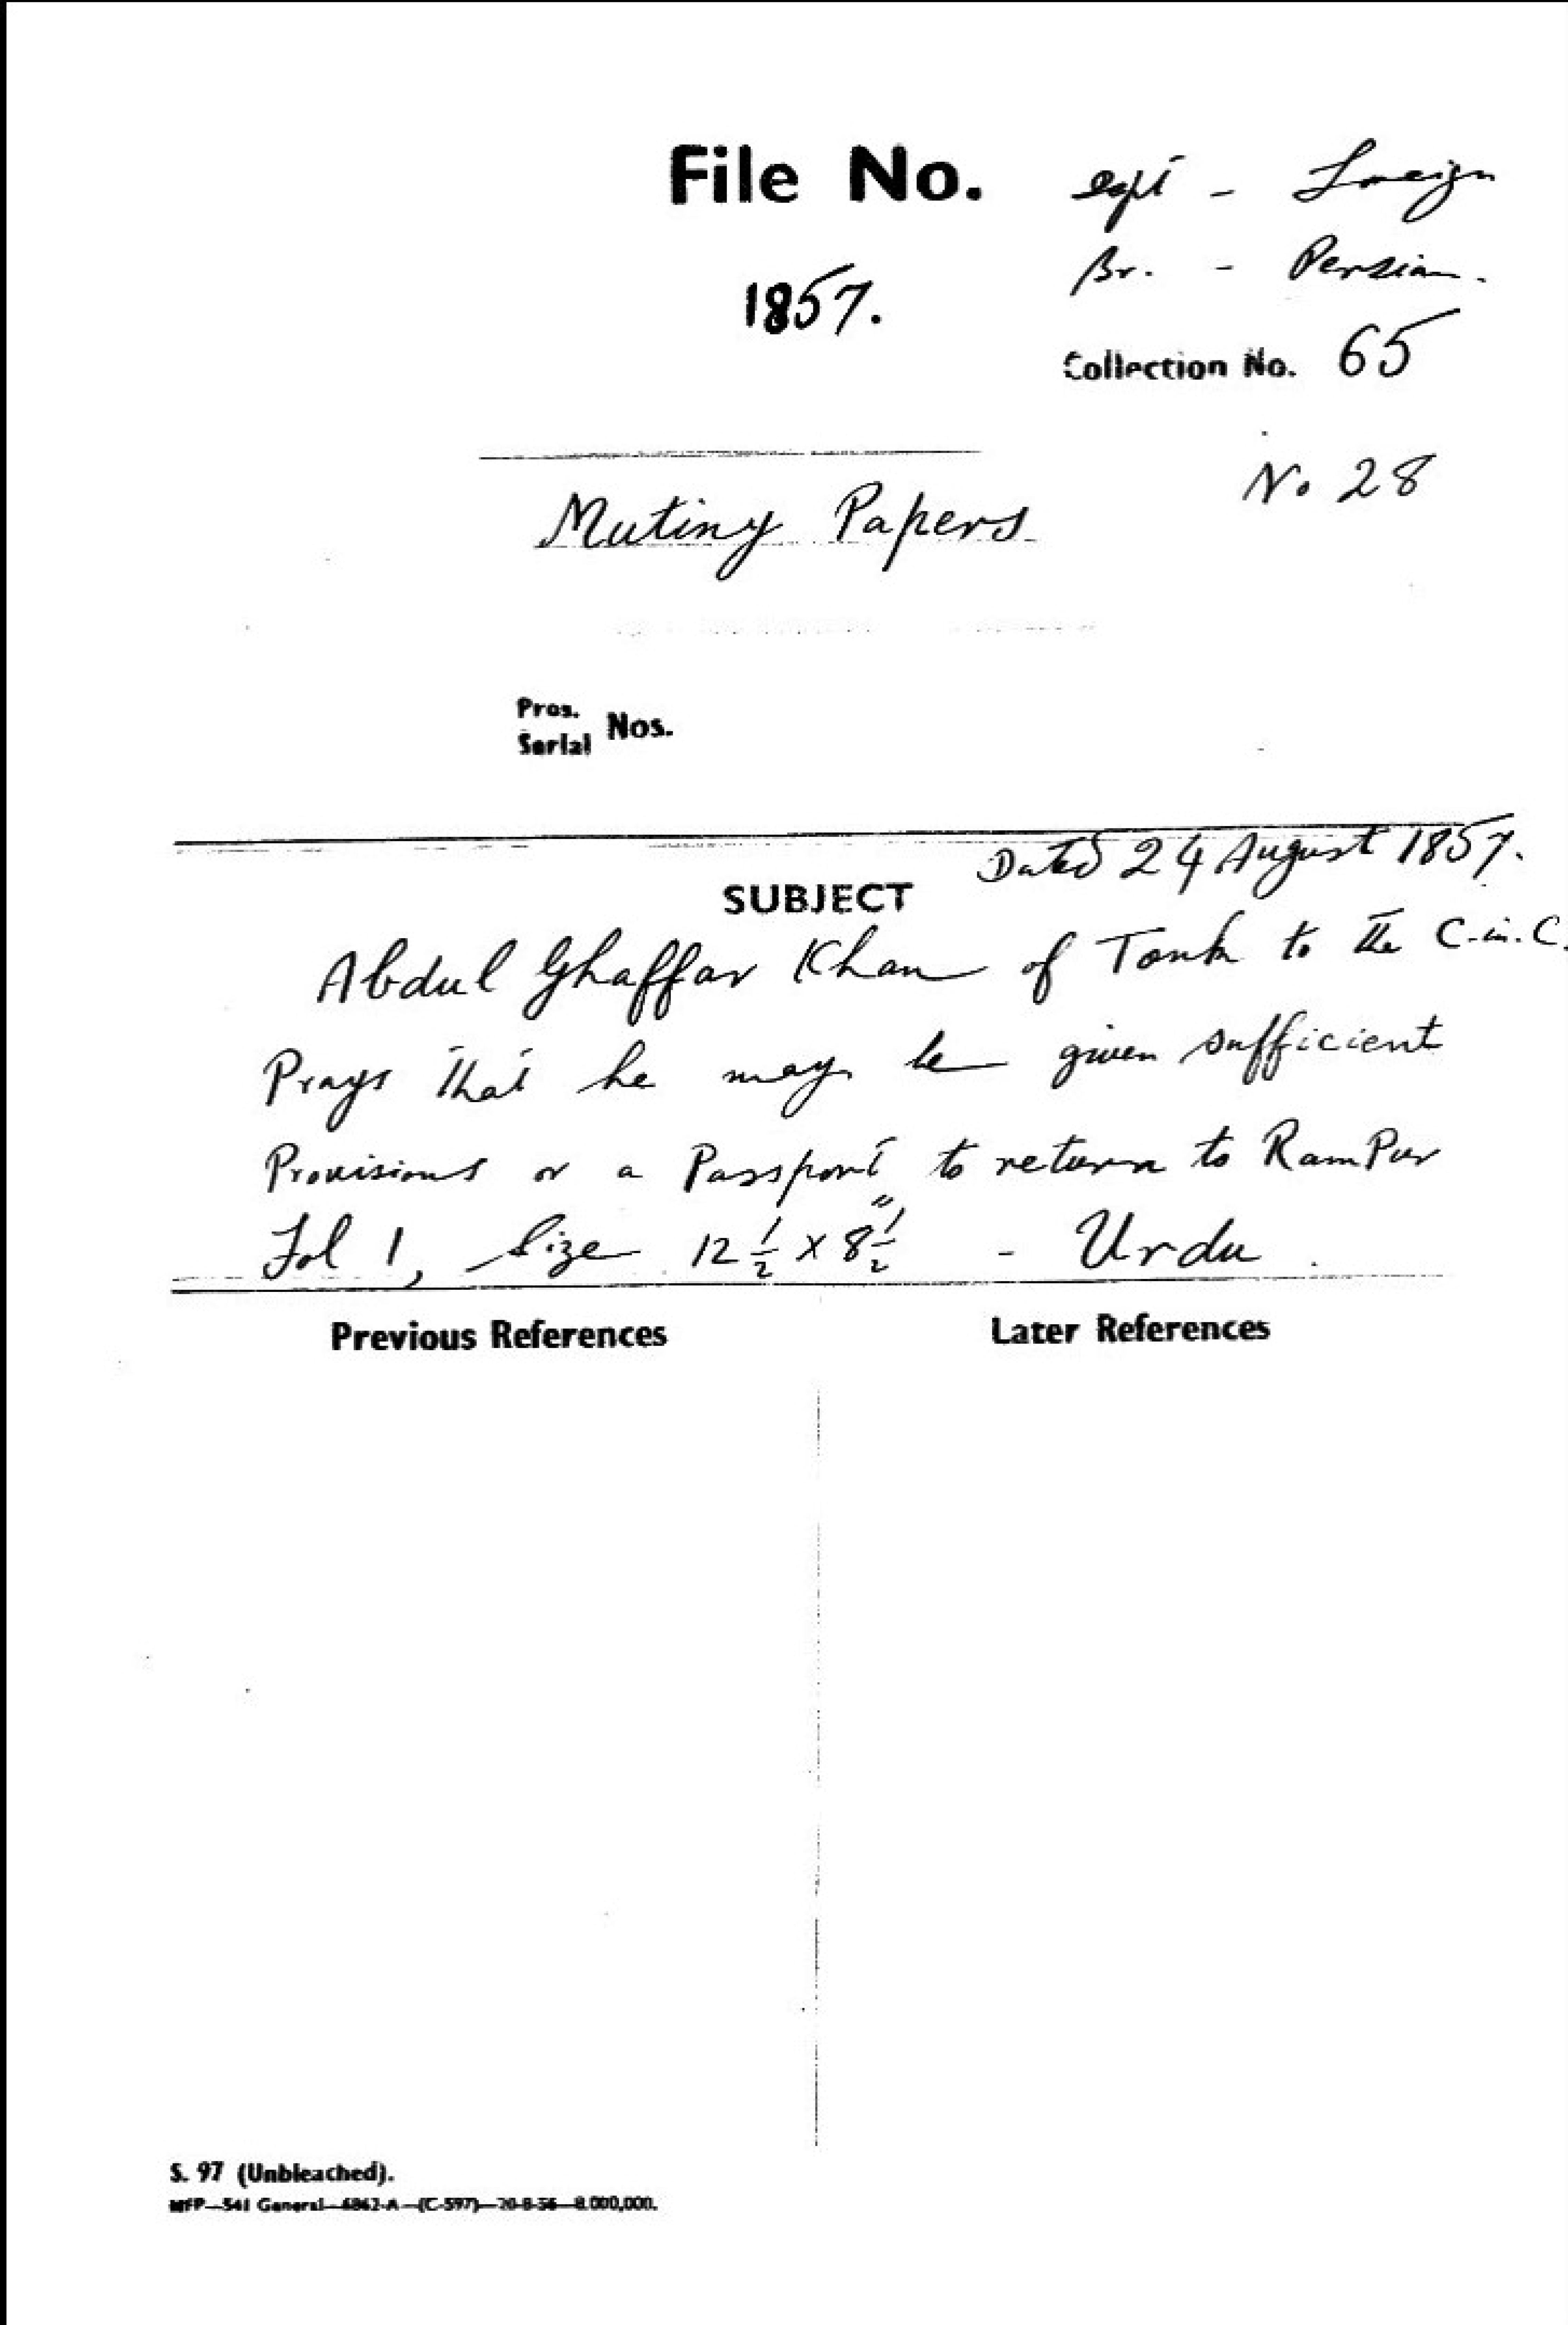 File No. eept - Foreign
1857. Br. - Persian.
Collection No. 65
No 28
Mutiny Papers
Pros.
Serial Nos.
Dated 24 August 1857.
SUBJECT
Abdul Ghaffar Khan of Tonk to the C-in-C.
Prays that he may be given sufficient
Provisions or a Passport to return to RamPur
Fol 1, Size 12 1/2 x 8 1/2" - Urdu.
Previous References Later References
S. 97 (Unbleached).
MFP—541 General—6862-A—(C-597)—20-8-56—8,000,000.